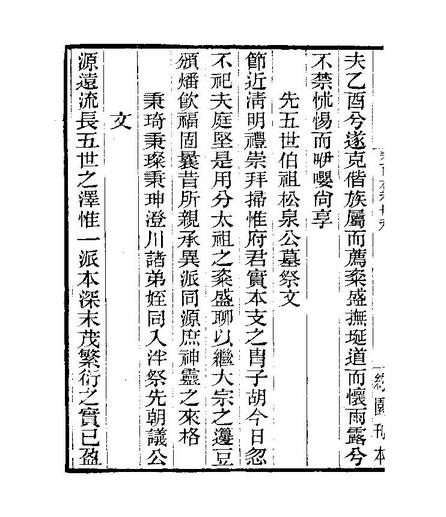 夫乙酉兮遂克偕族屬而薦粢盛撫埏道而懷雨露兮
不禁怵惕而咿嚶尙享
先五世伯祖松泉公墓祭文
節近淸明禮崇拜掃惟府君實本支之胄子胡今日忽
不祀夫庭堅是用分太祖之粢盛聊以繼大宗之籩豆
頒燔飮福固曩昔所親承異派同源庶神靈之來格
秉琦秉璨秉珅澄川諸弟姪同入泮祭先朝議公
文
源遠流長五世之澤惟一派本深末茂繁衍之實已盈
園刊本